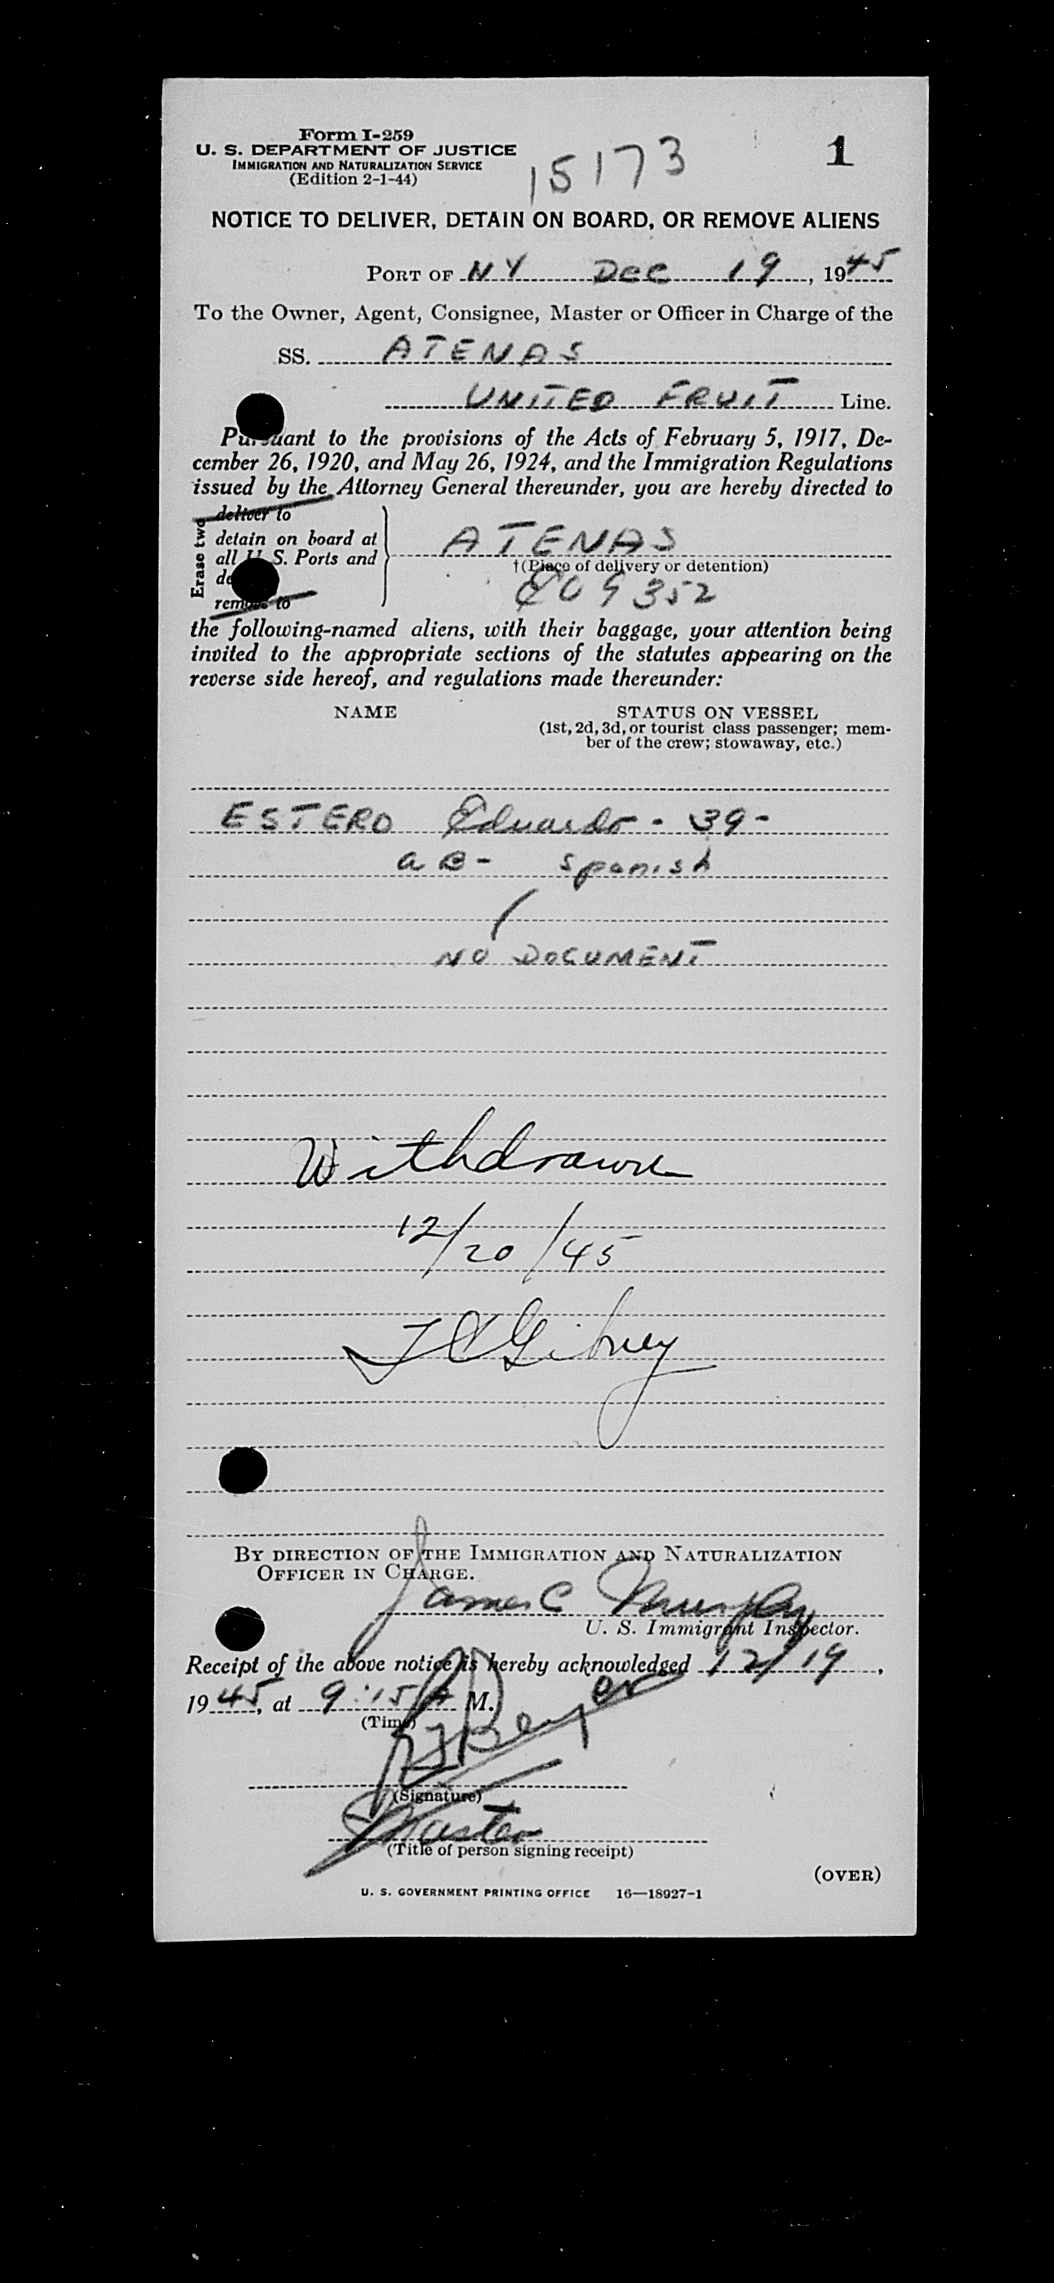 Form I-259
U. S. DEPARTMENT OF JUSTICE
IMMIGRATION AND NATURALIZATION SERVICE
(Edition 2-1-44)
15173
1
NOTICE TO DELIVER, DETAIN ON BOARD, OR REMOVE ALIENS
PORT OF NY Dec 19, 1945
To the Owner, Agent, Consignee, Master or Officer in Charge of the
SS. ATENAS
UNITED FRUIT Line.
Pursuant to the provisions of the Acts of February 5, 1917, De-
cember 26, 1920, and May 26, 1924, and the Immigration Regulations
issued by the Attorney General thereunder, you are hereby directed to
Erase two
deliver to
detain on board at
all U. S. Ports and
remove to
ATENAS
†(Place of delivery or detention)
09352
the following-named aliens, with their baggage, your attention being
invited to the appropriate sections of the statutes appearing on the
reverse side hereof, and regulations made thereunder:
NAME
STATUS ON VESSEL
(1st, 2d, 3d, or tourist class passenger; mem-
ber of the crew; stowaway, etc.)
ESTERO Eduardo - 39 -
a B - Spanish
NO DOCUMENT
Withdrawn
12/20/45
Gibney
BY DIRECTION OF THE IMMIGRATION AND NATURALIZATION
OFFICER IN CHARGE.
James C Murphy
U. S. Immigrant Inspector.
Receipt of the above notice is hereby acknowledged 12/19,
1945, at 9:15 A M.
(Time)
(Signature)
Master
(Title of person signing receipt)
(OVER)
U. S. GOVERNMENT PRINTING OFFICE 16—18927-1